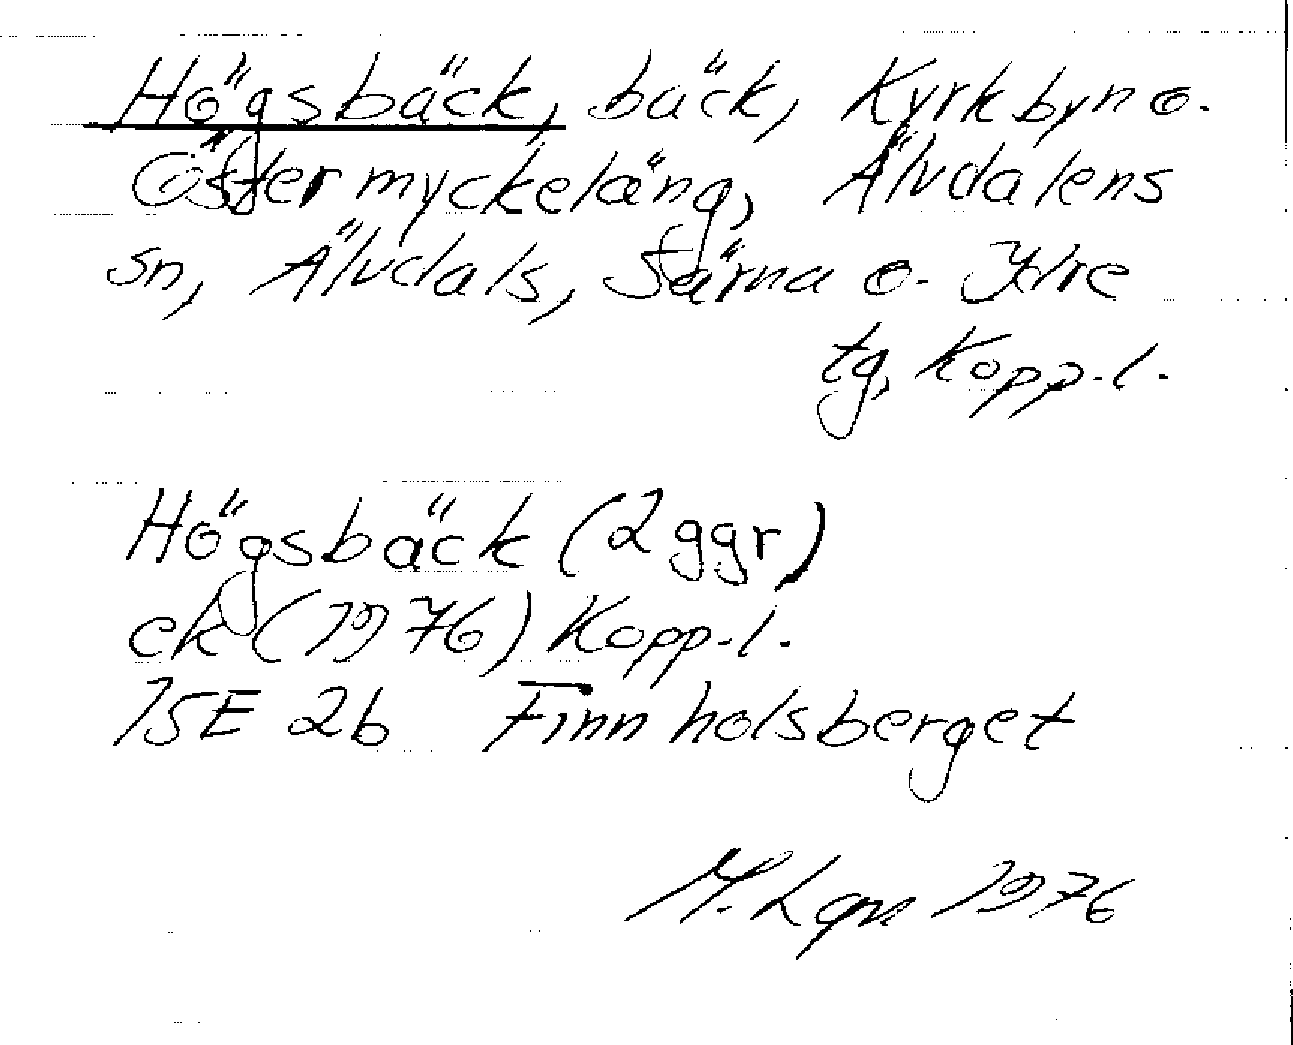 Högsbäck, bäck, Kyrkbyn o.
Östermyckeläng, Älvdalens
sn, Älvdals, Särna o. Idre
tg, Kopp.l.
Högsbäck (2 ggr)
ek (1976) Kopp.l.
15E 2b Finnholsberget
M. Lgn 1976